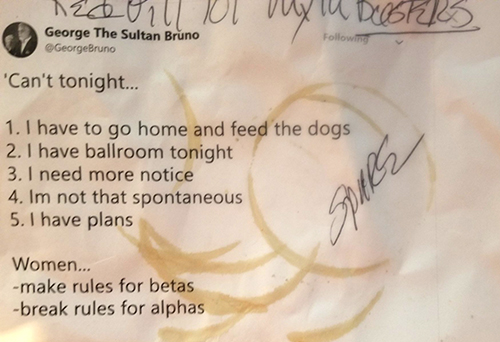 Red Pill for Myth BUSTERS
George The Sultan Bruno
@GeorgeBruno
Following
'Can't tonight...
1. I have to go home and feed the dogs
2. I have ballroom tonight
3. I need more notice
4. Im not that spontaneous
5. I have plans
SPURS
Women...
-make rules for betas
-break rules for alphas